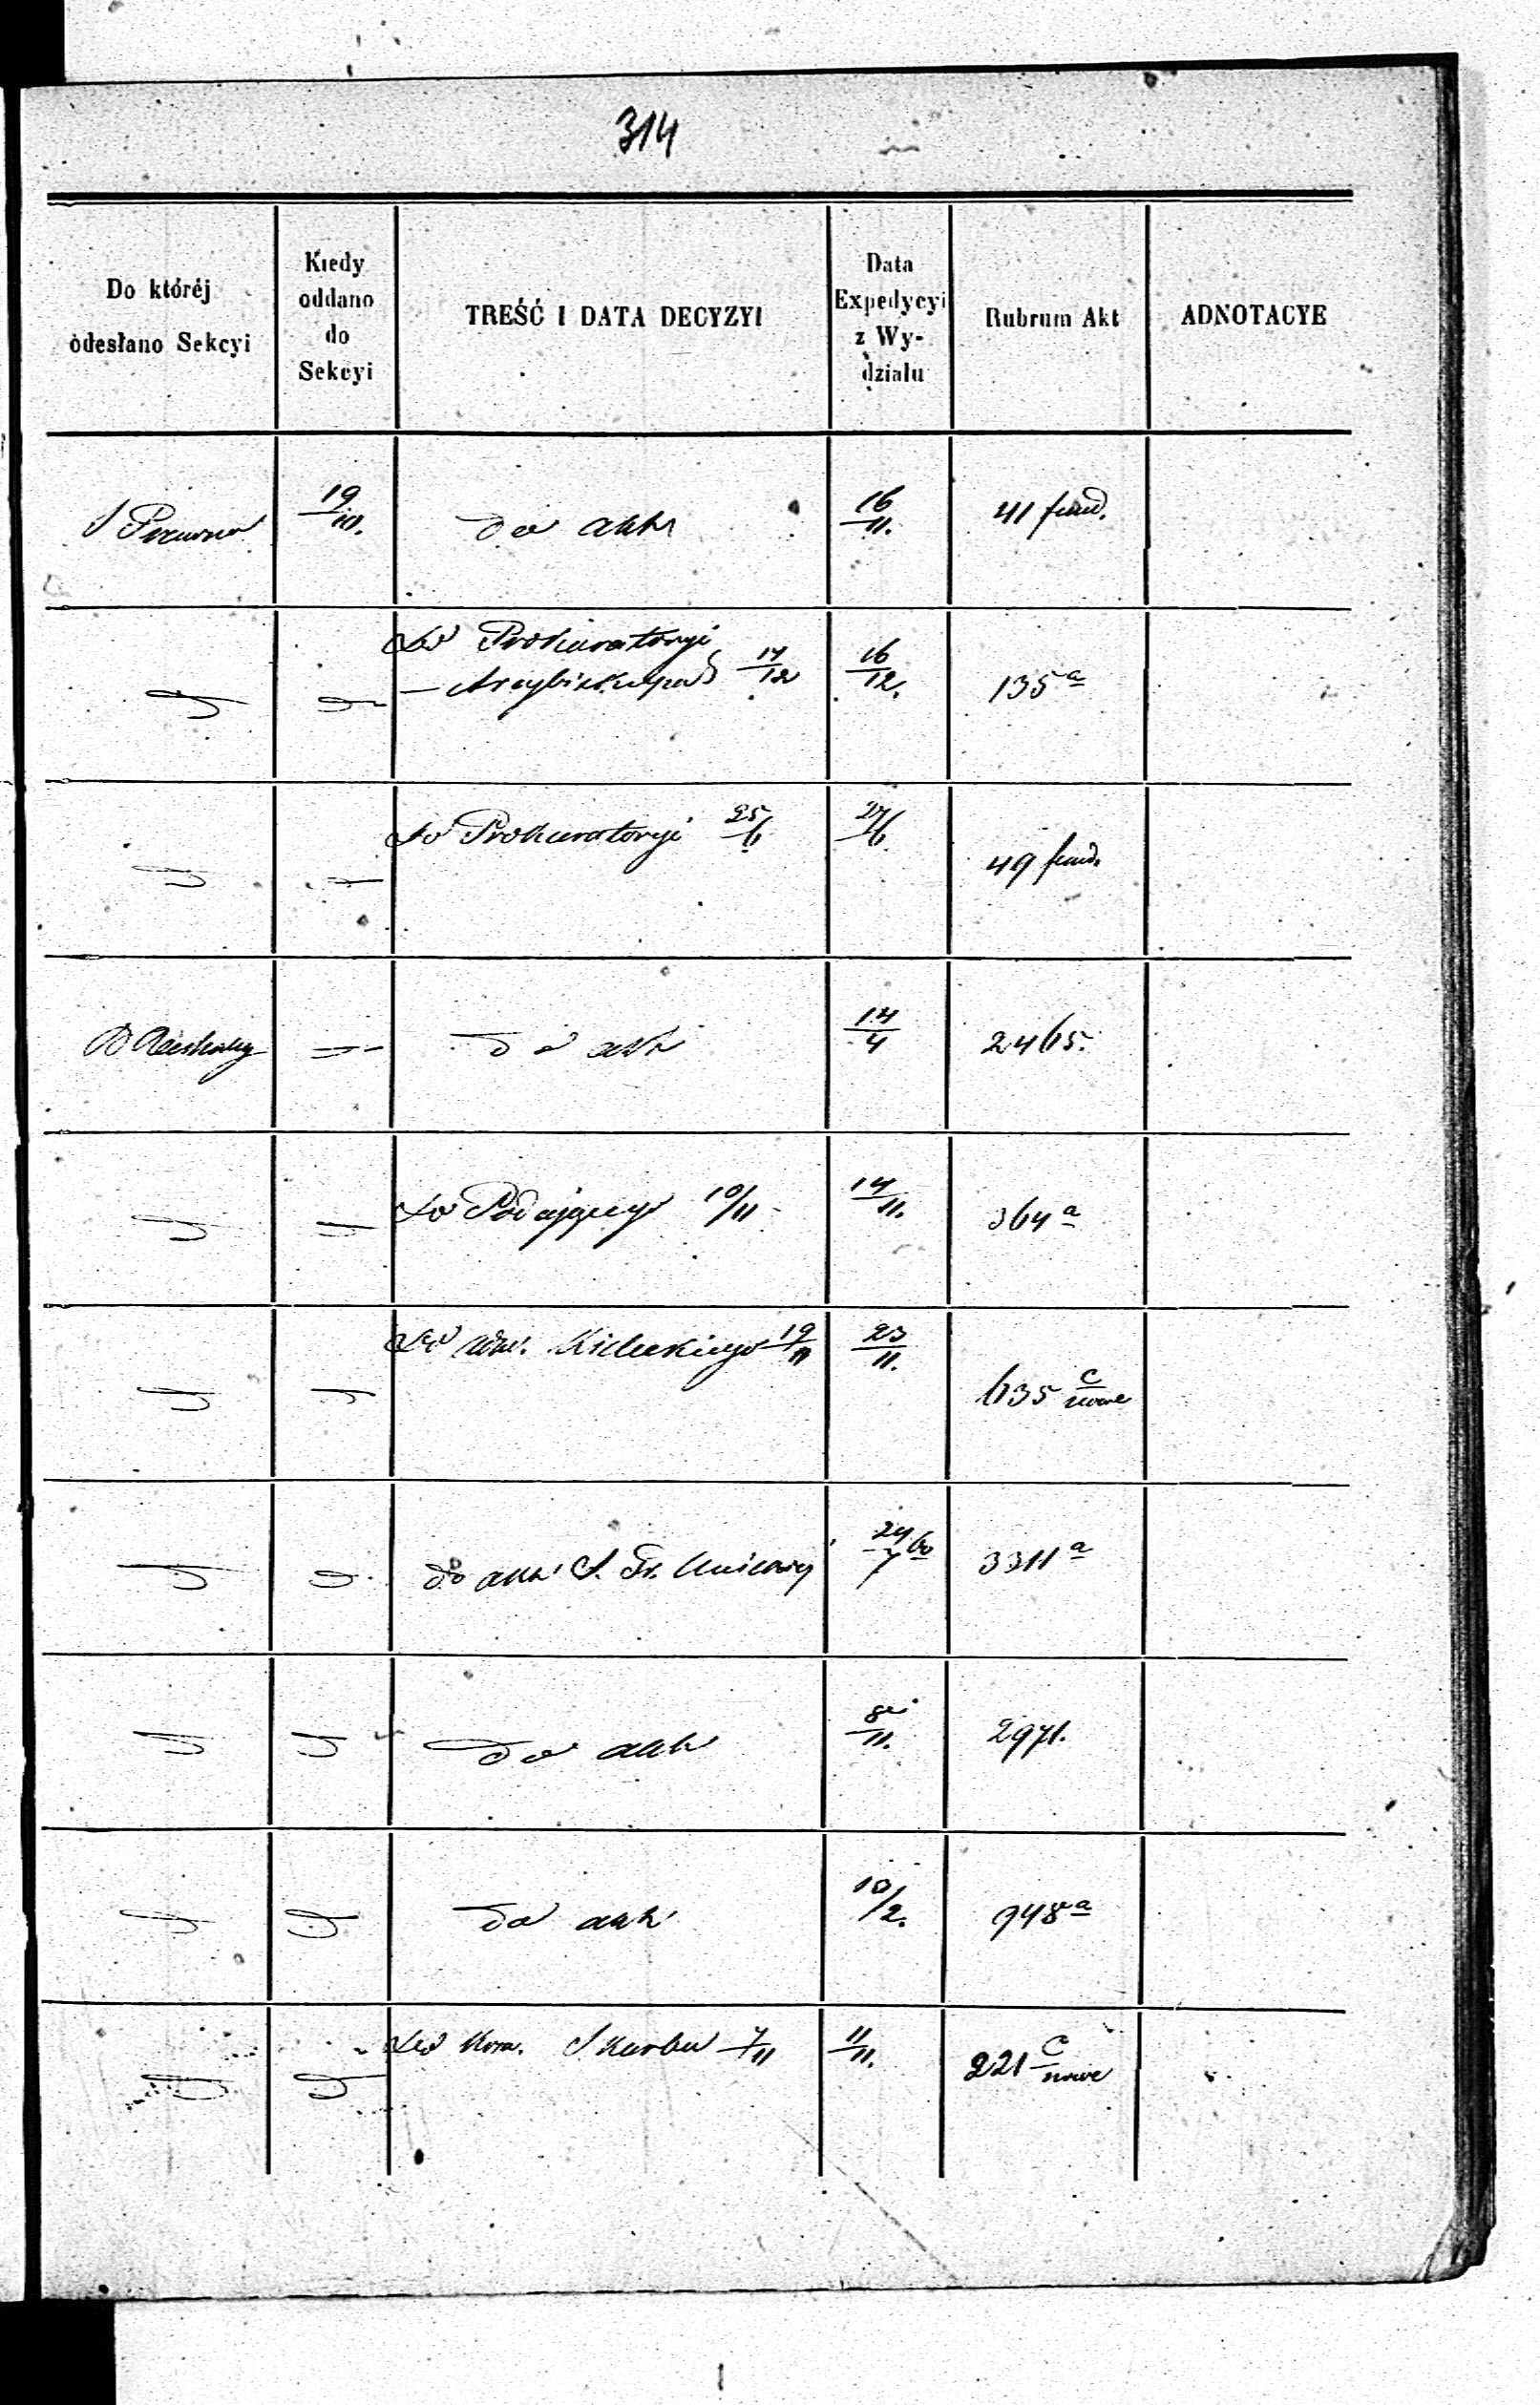 314
Do któréj odesłano Sekcyi
Kiedy oddano do Sekcyi
TREŚĆ I DATA DECYZYI
Data Expedycyi z Wy- działu
Rubrum Akt
ADNOTACYE
19/10. do akt 16/11. 41 fund.
Do Prokuratoryi
— Arcybiskupa 14/12 16/12. 135 a
Do Prokuratoryi 25/6 27/6 49 fund.
do akt 14/4 2465.
Do Podającego 10/11 14/11. 364 a
Do Kieleckiego 19/11 23/11. 635 c/nowe
do akt S. 24/7 60 3311 a
do akt 8/11. 2971.
do akt 10/2. 948 a
Do Kom. Skarbu 7/11 11/11. 221 c/nowe